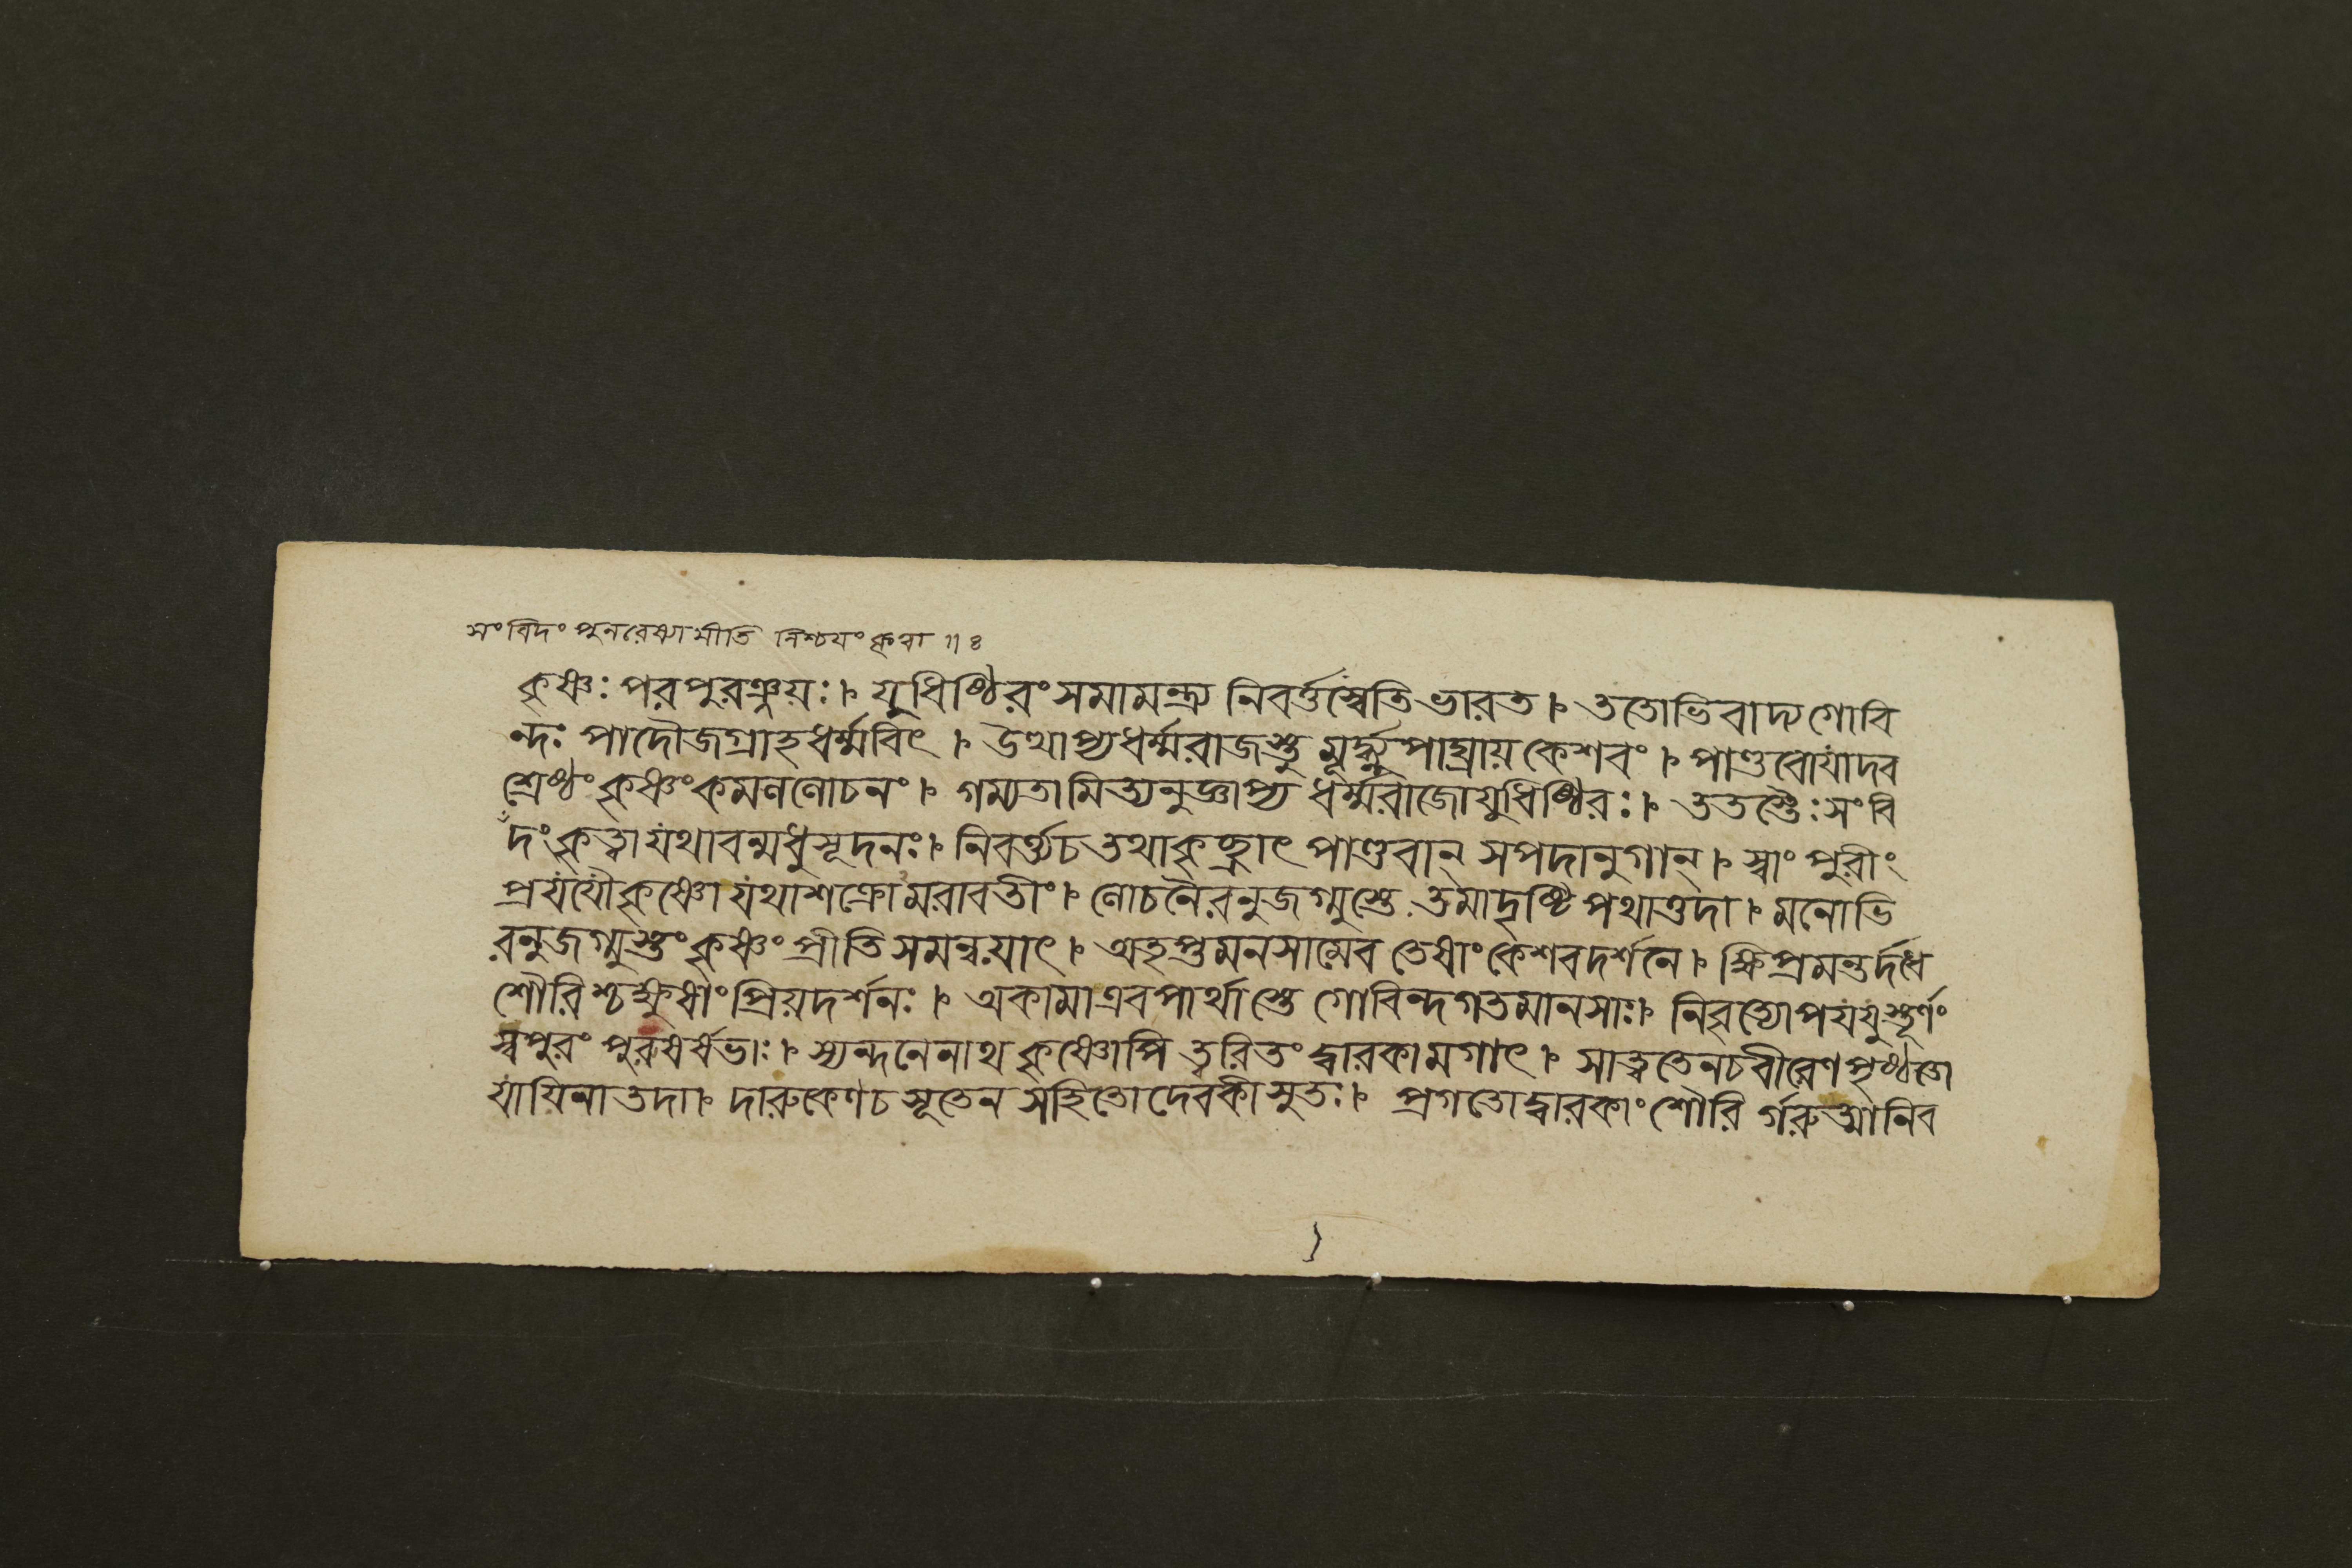 সংবিদং পুনরেষ্যামীতি নিশ্চয়ং কৃত্বা ॥ ৪
কৃষ্ণঃ পরপুরঞ্জয়ঃ । যুধিষ্ঠিরং সমামন্ত্র্য নিবর্ত্তস্বেতিভারত । ততোভিবাদ্যগোবি
ন্দঃ পাদৌজগ্রাহধর্ম্মবিৎ । উত্থাপ্যধর্ম্মরাজস্তু মূর্দ্ধ্ন্যুপাঘ্রায়কেশবং । পাণ্ডবোযাদব
শ্রেষ্ঠং কৃষ্ণংকমললোচনং । গম্যতামিত্যনুজ্ঞাপ্য ধর্ম্মরাজোযুধিষ্ঠিরঃ । ততস্তৈঃসংবি
দংকৃত্বাযথাবন্মধুসূদনঃ । নিবর্ত্ত্যচতথাকৃচ্ছ্রাৎ পাণ্ডবান্ সপদানুগান্ । স্বাং পুরীং
প্রযযৌকৃষ্ণো যথাশক্রোমরাবতীং । লোচনৈরনুজগ্মুস্তে তমাদৃষ্টিপথাত্তদা । মনোভি
রনুজগ্মুস্তং কৃষ্ণং প্রীতিসমন্বয়াৎ । অতৃপ্তমনসামেব তেষাংকেশবদর্শনে । ক্ষিপ্রমন্তর্দ্দধে
শৌরিশ্চক্ষুষাং প্রিয়দর্শনঃ । অকামাএবপার্থাস্তে গোবিন্দগতমানসাঃ । নিবৃত্যোপযযুস্তূর্ণং
স্বপুরং পুরুষর্ষভাঃ । স্যন্দনেনাথ কৃষ্ণোপি ত্বরিতং দ্বারকামগাৎ । সাত্ত্বতেনচবীরেণপৃষ্ঠতো
যায়িনাতদা । দারুকেণচসূতেন সহিতোদেবকীসুতঃ । প্রগতোদ্বারকাংশৌরি র্গরুত্মানিব